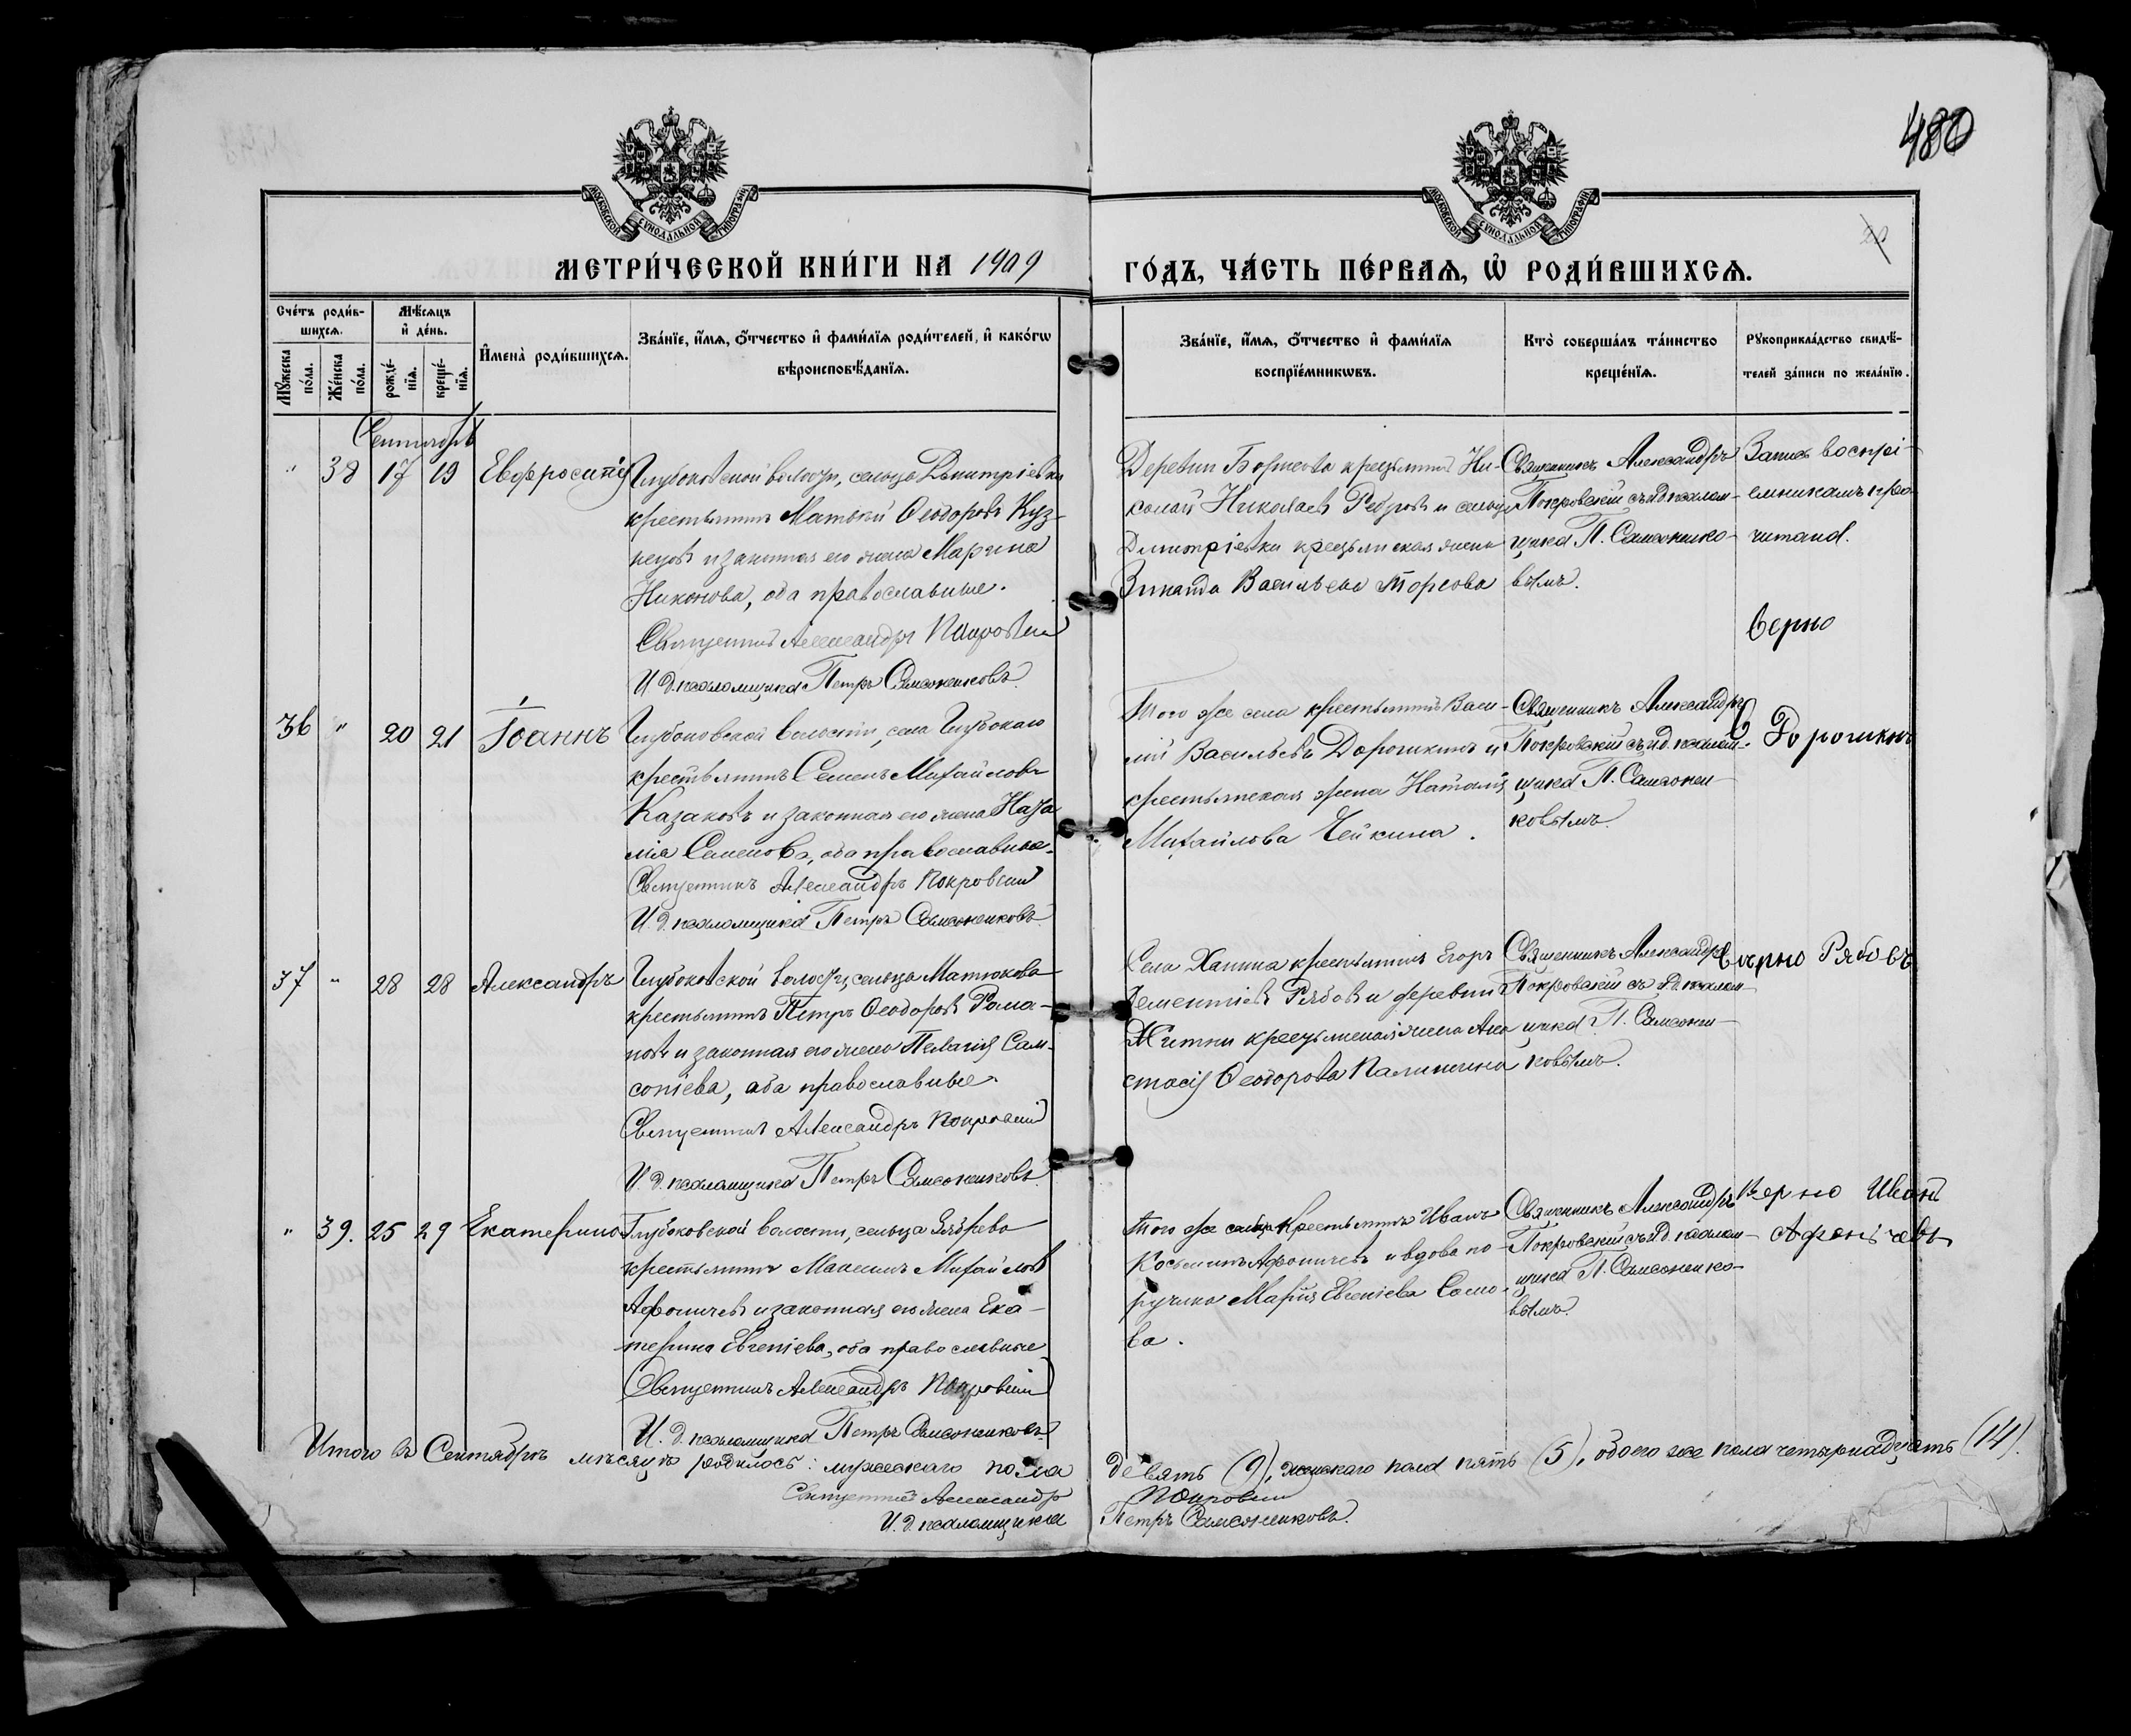 480
МОСКОВСКОЙ СѴНОДАЛЬНОЙ ТИПОГРАФІИ
МОСКОВСКОЙ СѴНОДАЛЬНОЙ ТИПОГРАФІИ
МЕТРИ́ЧЕСКОЙ КНИ́ГИ НА 1909
ГО́ДЪ, ЧА́СТЬ ПЕ́РВАЯ, Ѡ РОДИ́ВШИХСѦ.
Сче́тъ роди́в-
шихсѧ.
Мꙋ́жеска
по́ла.
Же́нска
по́ла.
Мѣ́сѧцъ
и҆ де́нь.
рожде́-
нїѧ.
креще́-
нїѧ.
И҆мена̀ роди́вшихсѧ.
Зва́нїе, и҆́мѧ, ѻ҆́тчество и҆ фами́лїѧ роди́телей, и҆ како́гѡ
вѣроисповѣ́данїѧ.
Зва́нїе, и҆́мѧ, ѻ҆́тчество и҆ фами́лїѧ
воспрїе́мникѡвъ.
Кто̀ соверша́лъ та́инство
креще́нїѧ.
Рꙋкоприкла́дство свидѣ́-
телей за́писи по жела́нїю.
Сентябрь
" 38 17 19 Евфросинія
Глубоковской волости, сельца Димитріевки
крестьянинъ Матвѣй Ѳеодоровъ Куз-
нецовъ и законная его жена Марина
Никонова, оба православные.
Священникъ Александръ Покровскій
И. д. псаломщика Петръ Самсонниковъ
Деревни крестьянинъ Ни-
колай Николаевъ Ребровъ и сельца
Димитріевки крестьянская жена
Зинаида Васильева
Священникъ Александръ
Покровскій съ и.д. псалом-
щика П. Самсоннико-
вымъ.
Запись воспрі-
емникамъ про-
читана.
верно
36 " 20 21 Іоаннъ
Глубоковской волости, села Глубокаго
крестьянинъ Семенъ Михайловъ
Казаковъ и законная его жена
Семенова, оба православные.
Священникъ Александръ Покровскій
И. д. псаломщика Петръ Самсонниковъ
Того же села крестьянинъ Васи-
лій Васильевъ Дорошкинъ и
крестьянская жена Наталія
Михайлова Чейкина.
Священникъ Александръ
Покровскій съ и.д. псалом-
щика П. Самсонни-
ковымъ.
В Дорошкин
37 " 28 28 Александръ
Глубоковской волости, сельца Матюкова
крестьянинъ Петръ Ѳеодоровъ Рома-
новъ и законная его жена Пелагія Сам-
сонiева, оба православные.
Священникъ Александръ Покровскій
И. д. псаломщика Петръ Самсонниковъ
Села Ханина крестьянинъ Егоръ
Дементіевъ Рябовъ и деревни
Житни крестьянская жена Ана-
стасія Ѳеодорова Калинкина
Священникъ Александръ
Покровскій съ и.д. псалом-
щика П. Самсонни-
ковымъ.
вѣрно Рябовъ
" 39. 25 29 Екатерина
Глубоковской волости, сельца
крестьянинъ Максимъ Михайловъ
Афоничевъ и законная его жена Ека-
терина Евгеніева, оба православные
Священникъ Александръ Покровскій
И. д. псаломщика Петръ Самсонниковъ
Того же сельца крестьянинъ Иванъ
Косьминъ Афоничевъ и вдова по-
ручика Марія Евгеніева Сомо-
ва.
Священникъ Александръ
Покровскій съ и.д. псалом-
щика П. Самсоннико-
вымъ.
Верно Иванъ
Афонічевъ
Итого въ Сентябрѣ мѣсяцѣ родилось: мужескаго пола девять (9), женскаго пола пять (5), обоего же пола четырнадцать (14).
Священникъ Александръ Покровскій
И. д. псаломщика Петръ Самсонниковъ.